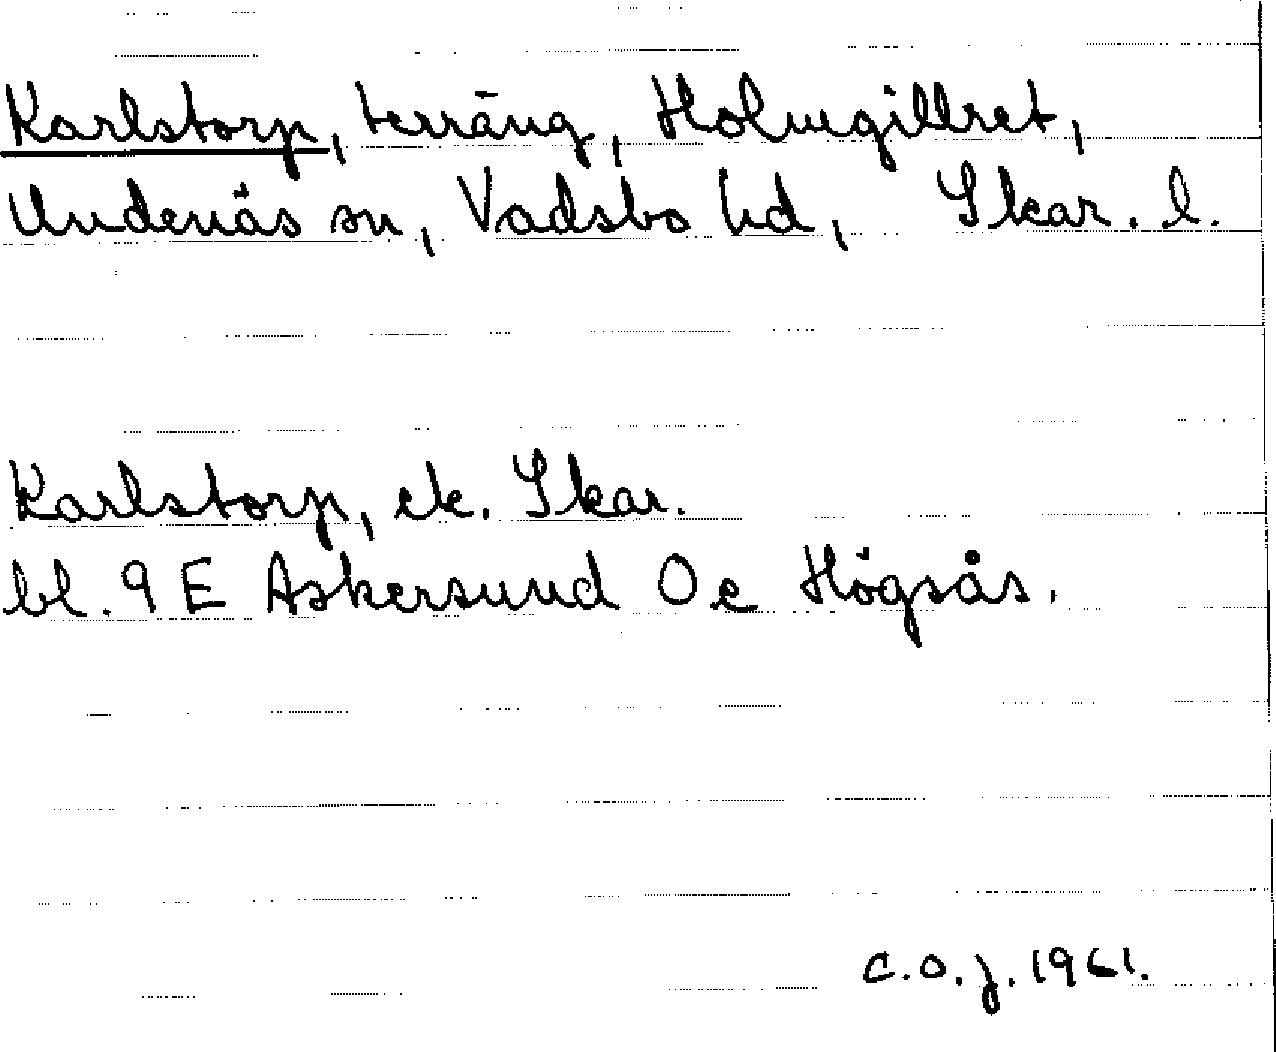 Karlstorp, terräng, Holmgillret,
Undenäs sn, Vadsbo hd, Skar. l.
Karlstorp, ek. Skar.
bl. 9 E Askersund O e Högsås.
C.O.J. 1961.